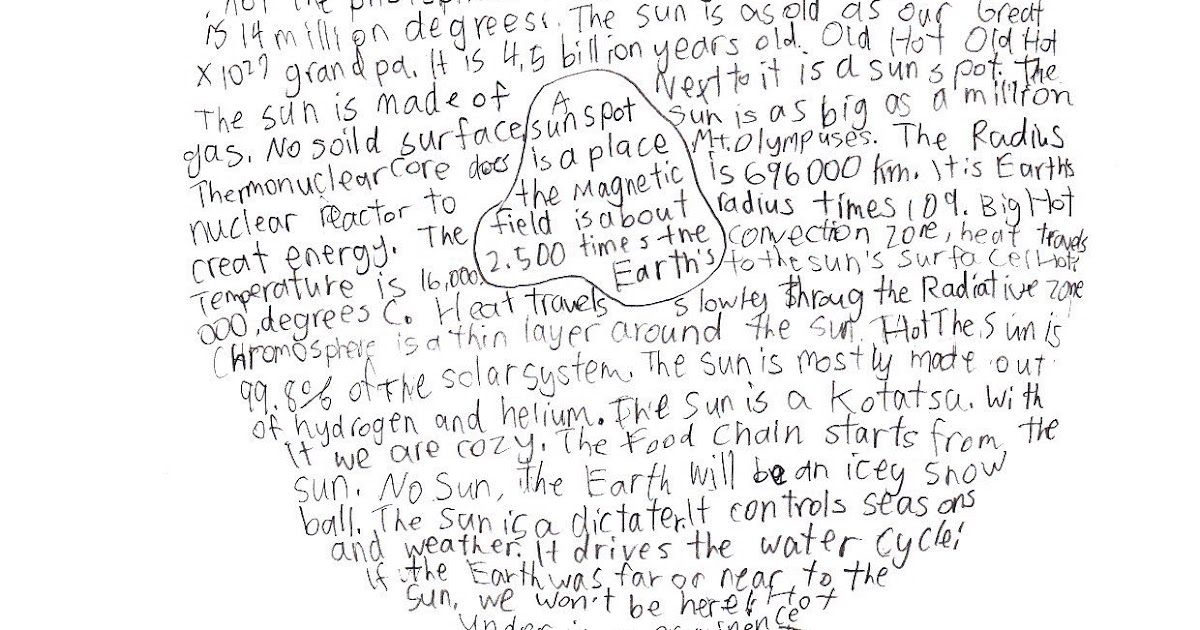 is 14 million degrees. The sun is as old as our Great
X 10²⁷ grandpa. It is 4,5 billion years old. Old Hot Old Hot
Next to it is a sun spot. The
The sun is made of A sun is as big as a million
gas. No soild surface sunspot Mt.Olympuses. The Radius
Thermonuclear Core does is a place is 696000 km. It is Earths
nuclear reactor to the Magnetic radius times 109. Big Hot
creat energy. The field is about convection zone, heat travels
Temperature is 16,000, 2.500 times the to the sun's surface! Hot!
000, degrees C. Heat travels Earth's slowley throug the Radiative zone
Chromosphere is a thin layer around the sun. Hot The Sun is
99.8% of the solar system. The sun is mostly made out
of hydrogen and helium. The sun is a Kotatsu. With
it we are cozy. The Food Chain starts from the
sun. No Sun, the Earth will be an icey snow
ball. The sun is a dictater. It controls seasons
and weather. It drives the water cycle!
If the Earth was far or near to the
Sun, we won't be here! Hot